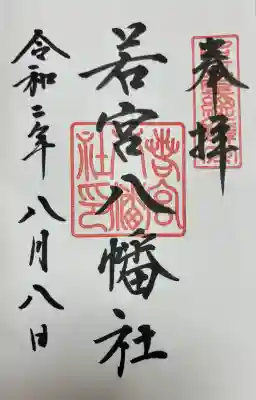 奉拝
若宮八幡社
若宮
八幡
社印
令和二年八月八日